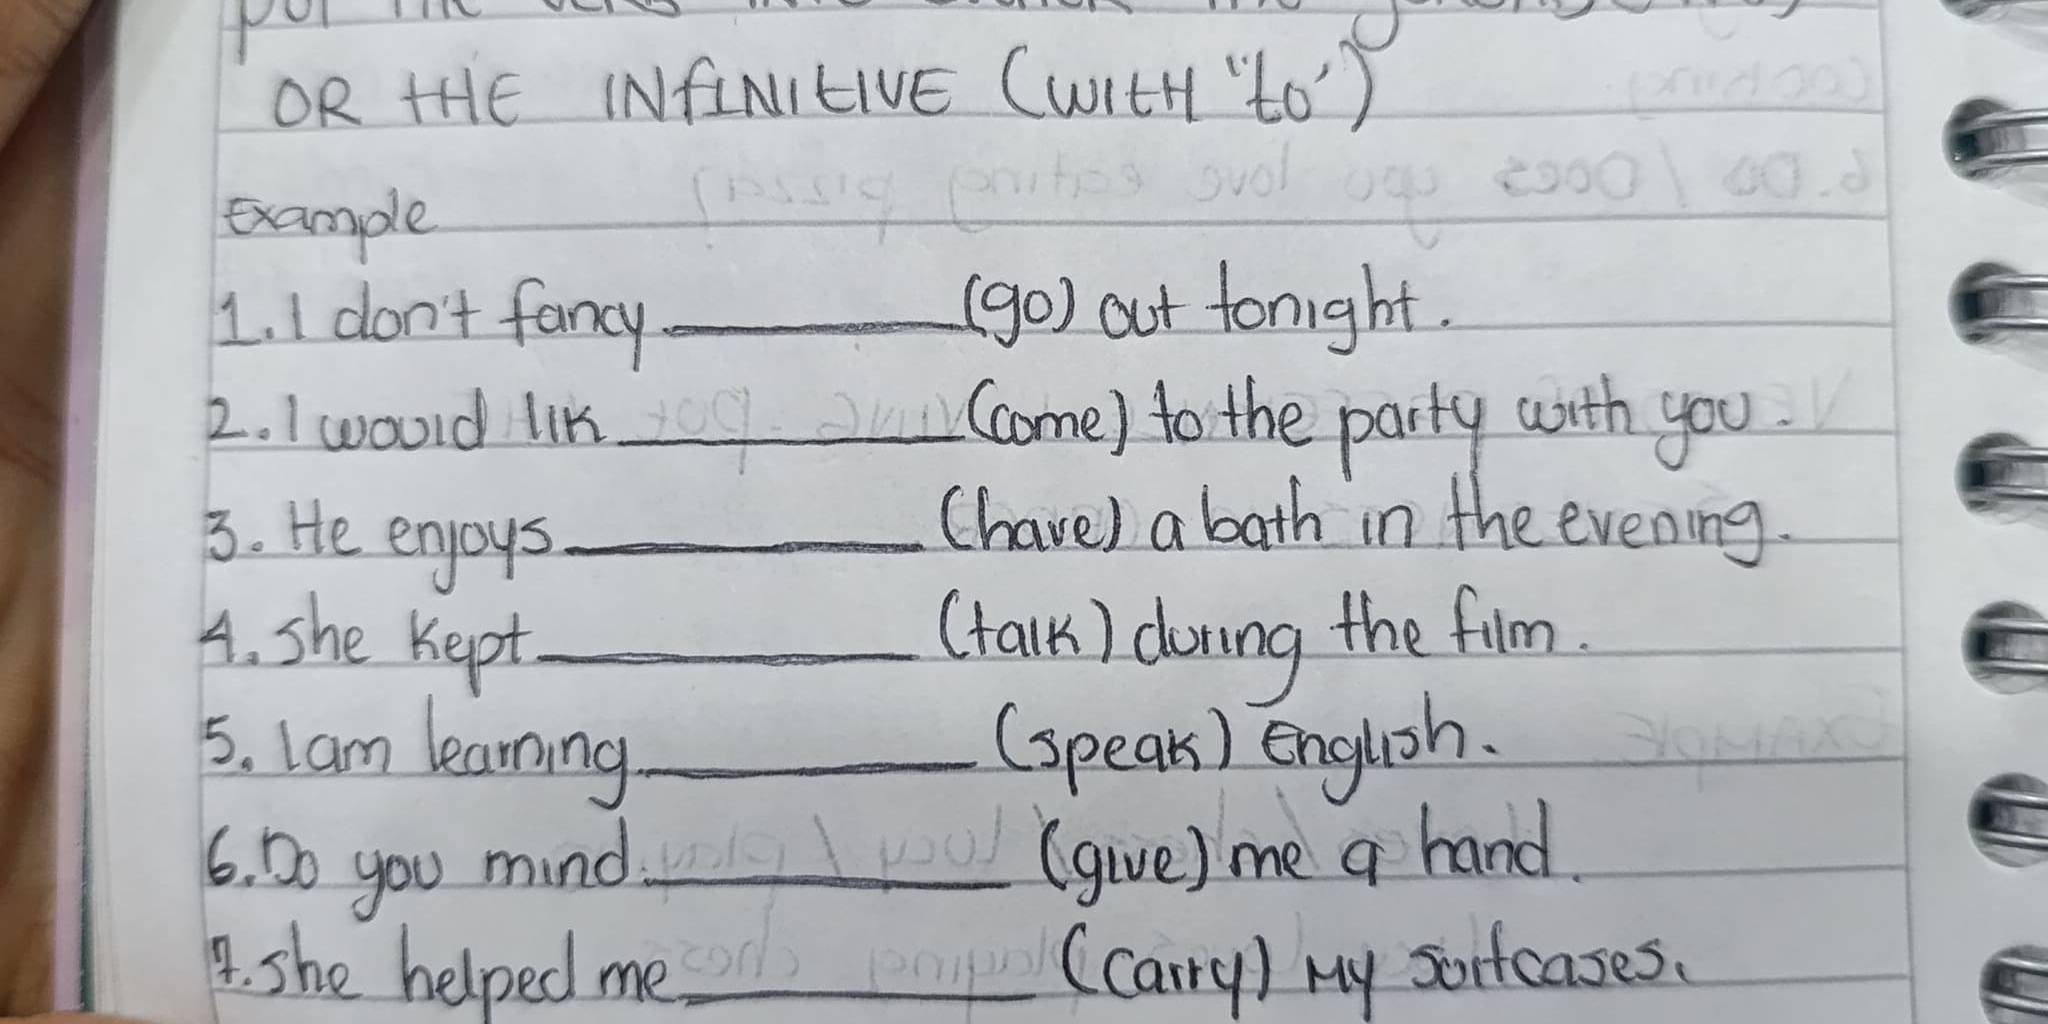 put the verb into either the gerund (-ing)
OR tHE INfINItIVE (WItH "to')
Example
1. I don't fancy __________ (go) out tonight.
2. I would lik __________ (come) to the party with you.
3. He enjoys __________ (have) a bath in the evening.
4. She kept __________ (talk) during the film.
5. I am learning __________ (speak) English.
6. Do you mind __________ (give) me a hand.
7. She helped me __________ (carry) My suitcases.